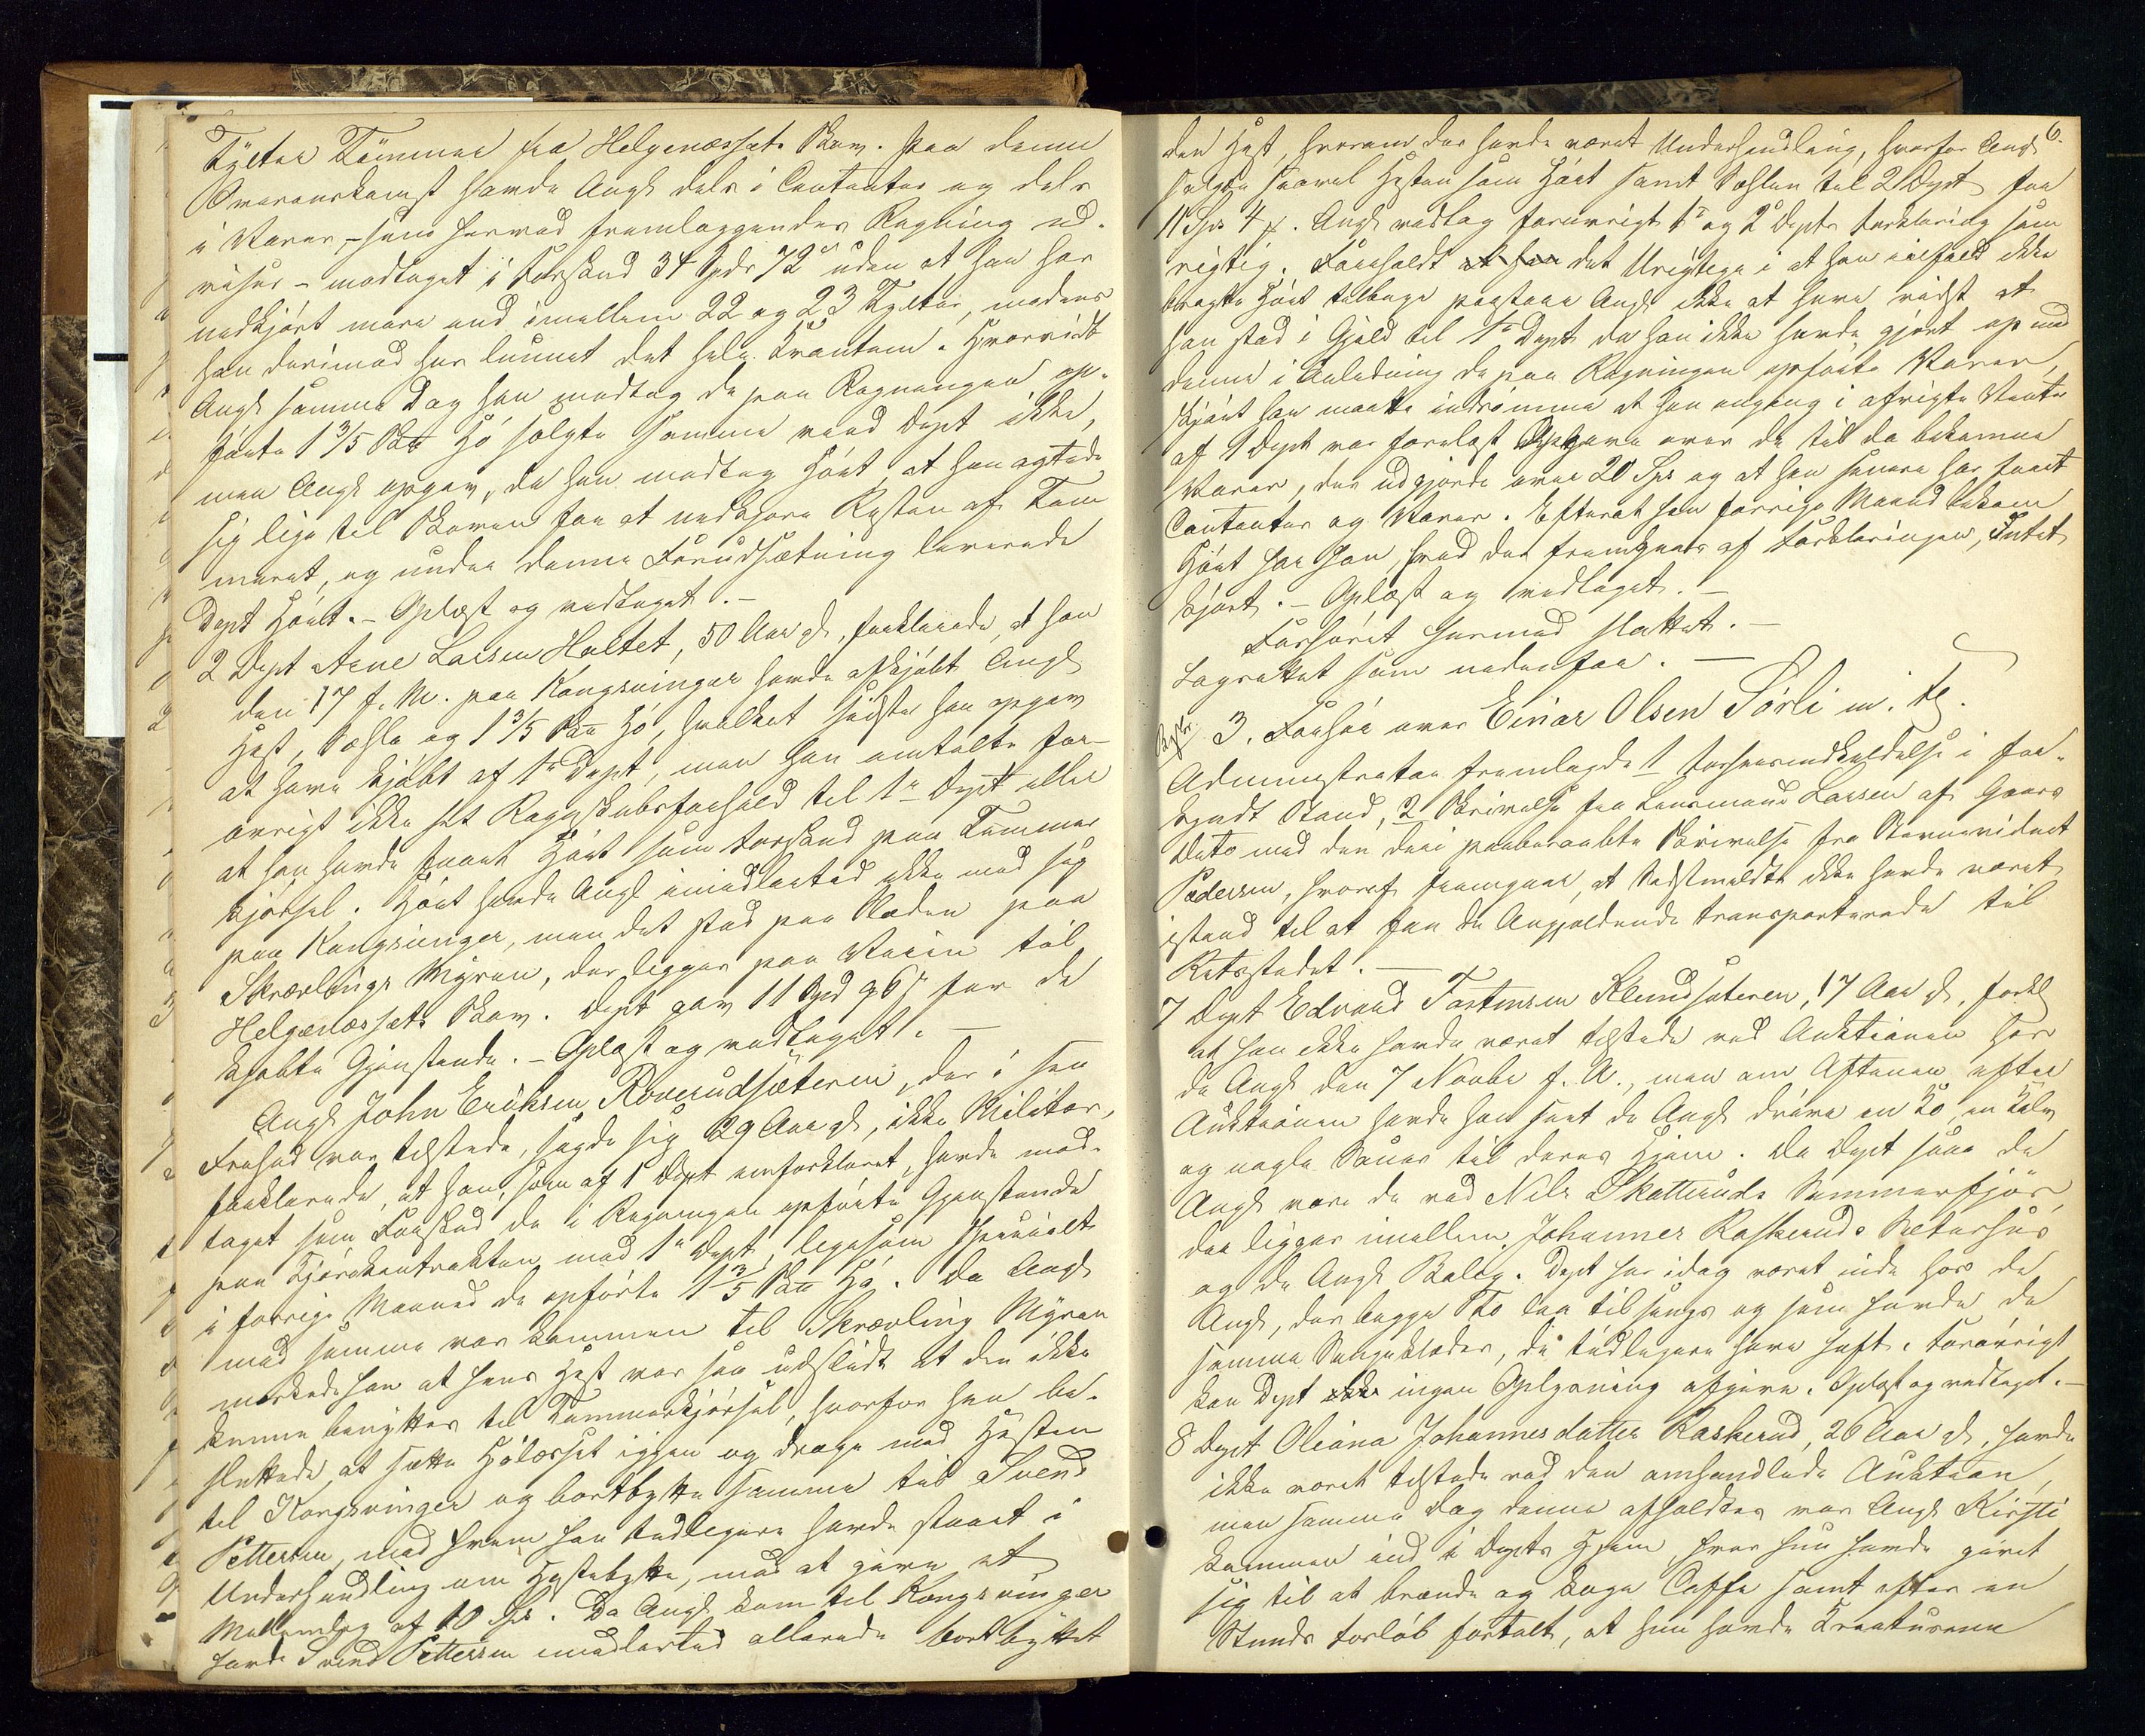 Tylter Tømmer fra Helgenæssets Skov. Paa denne
Overenskomst havde Angk dels i Contanter og dels
i Varer, – som herved fremlæggendes Regning ud-
viser – modtaget i Forskud 34 Spdr 72 s uden at han har
nedkjørt mere end imellem 22 og 23 Tylter, medens
han derimod har lunnet det hele Kvantum. Hvorvidt
Angk samme Dag han modtog de paa Regningen op-
førte 1 3/5 Sk℔ Hø solgte samme veed Dept ikke,
men Angk opgav, da han modtog Høet, at han agtede
sig lige til Skoven for at nedkjøre Resten af Tøm
meret, og under denne Forudsætning leverede
Dept Høet. – Oplæst og vedtaget. –
2 Dept Arne Larsen Holtet, 50 Aar gl, forklarede, at han
den 17 f. M. paa Kongsvinger havde afkjøbt Angk
Hest, Sæhle og 1 3/5 Sk℔ Hø, hvilket sidste han opgav
at have kjøbt af 1ste Dept, men han omtalte for-
øvrigt ikke sit Regnskabsforhold til 1ste Dept eller
at han havde faaet Høet som Forskud paa Tømmer
kjørsel. Høet havde Angk imidlertid ikke med sig
paa Kongsvinger, men det stod paa Sleden paa
Skrævlings Myren, der ligger paa Veien til
Helgenæssets Skov. Dept gav 11 Spd 96 s for de
kjøbte Gjenstande. – Oplæst og vedtaget. –
Angk John Eriksen Roverudsæteren, der i sin
Frihed var tilstede, sagde sig 29 Aar gl, ikke Militær,
forklarede, at han, som af 1 Dept omforklaret, havde mod-
taget som Forskud de i Regningen opførte Gjenstande
paa Kjørekontrakten med 1ste Dept, ligesom specielt
i forrige Maaned de opførte 1 3/5 Sk℔ Hø. Da Angk
med samme var kommen til Skrævling Myren
mærkede han at hans Hest var saa udslidt at den ikke
kunne benyttes til Tømmerkjørsel, hvorfor han be-
sluttede at sætte Hølasset igjen og drage med Hesten
til Kongsvinger og bortbytte samme til Svend
Pettersen, med hvem han tidligere havde staaet i
Underhandling om Hestebytte, mod at give et
Mellemlag af 10 Spd. Da Angk kom til Kongsvinger
havde Svend Pettersen imidlertid allerede bortbyttet
6.
den Hest, hvorom der havde været Underhandling, hvorfor Angk
solgte saavel Hesten som Høet samt Sæhlen til 2 Dept for
11 Spd 4 . Angk vedtog forøvrigt 1ste og 2 Depts Forklaring som
rigtig. Foreholdt at han det Urigtige i at han ialfald ikke
bragte Høet tilbage paastaar Angk ikke at have vidst at
han stod i Gjeld til 1ste Dept da han ikke havde gjort op med
denne i Anledning de paa Regningen opførte Varer,
skjønt han maatte indrømme at han engang i afvigte Vinter
af 1 Dept var forelæst Opgave over de til da bekomne
Varer, der udgjorde over 20 Spd og at han senere har faaet
Contanter og Varer. Efterat han forrige Maaned bekom
Høet har han, hvad der fremgaar af Forklaringen, Intet
kjørt. – Oplæst og vedtaget. –
Forhøret hermed sluttet. –
Lagrettet som nedenfor. –
3. Forhør over Einar Olsen Sørli m. fl.
Administrator fremlagde 1 Forhørsindkaldelse i for-
kyndt Stand, 2 Skrivelse fra Lensmand Larsen af Gaars
Dato med den deri paaberaabte Skrivelse fra Stevnevidnet
Pedersen, hvoraf fremgaar, at Sidstmeldte ikke havde været
istand til at faa de Angjeldende transporterede til
Retsstedet. –
7 Dept Edvard Torstensen Klundsæteren, 17 Aar gl, forkl
at han ikke havde været tilstede ved Auktionen hos
de Angk den 7 Novbr f. A., men om Aftenen efter
Auktionen havde han seet de Angk drive en Ko en Kalv
og nogle Sauer til deres Hjem. Da Dept saae de
Angk vare de ved Nils Skatteruds Sommerfjøs,
der ligger imellem Johannes Raskeruds Sætershus
og de Angk Bolig. Dept har idag været inde hos de
Angk, der begge To laa tilsengs og som havde de
samme Sengeklæder, de tidligere have haft. Forøvrigt
kan Dept ikke ingen Oplysning afgive. Oplæst og vedtaget. –
8 Dept Oleana Johannesdatter Raskerud, 26 Aar gl, havde
ikke været tilstede ved den omhandlede Auktion,
men samme Dag denne afholdtes var Angk Kirsti
kommen ind i Depts Hjem, hvor hun havde givet
sig til at brænde og koge Caffe samt efter en
Stunds Forløb fortalt, at hun havde Kreaturene